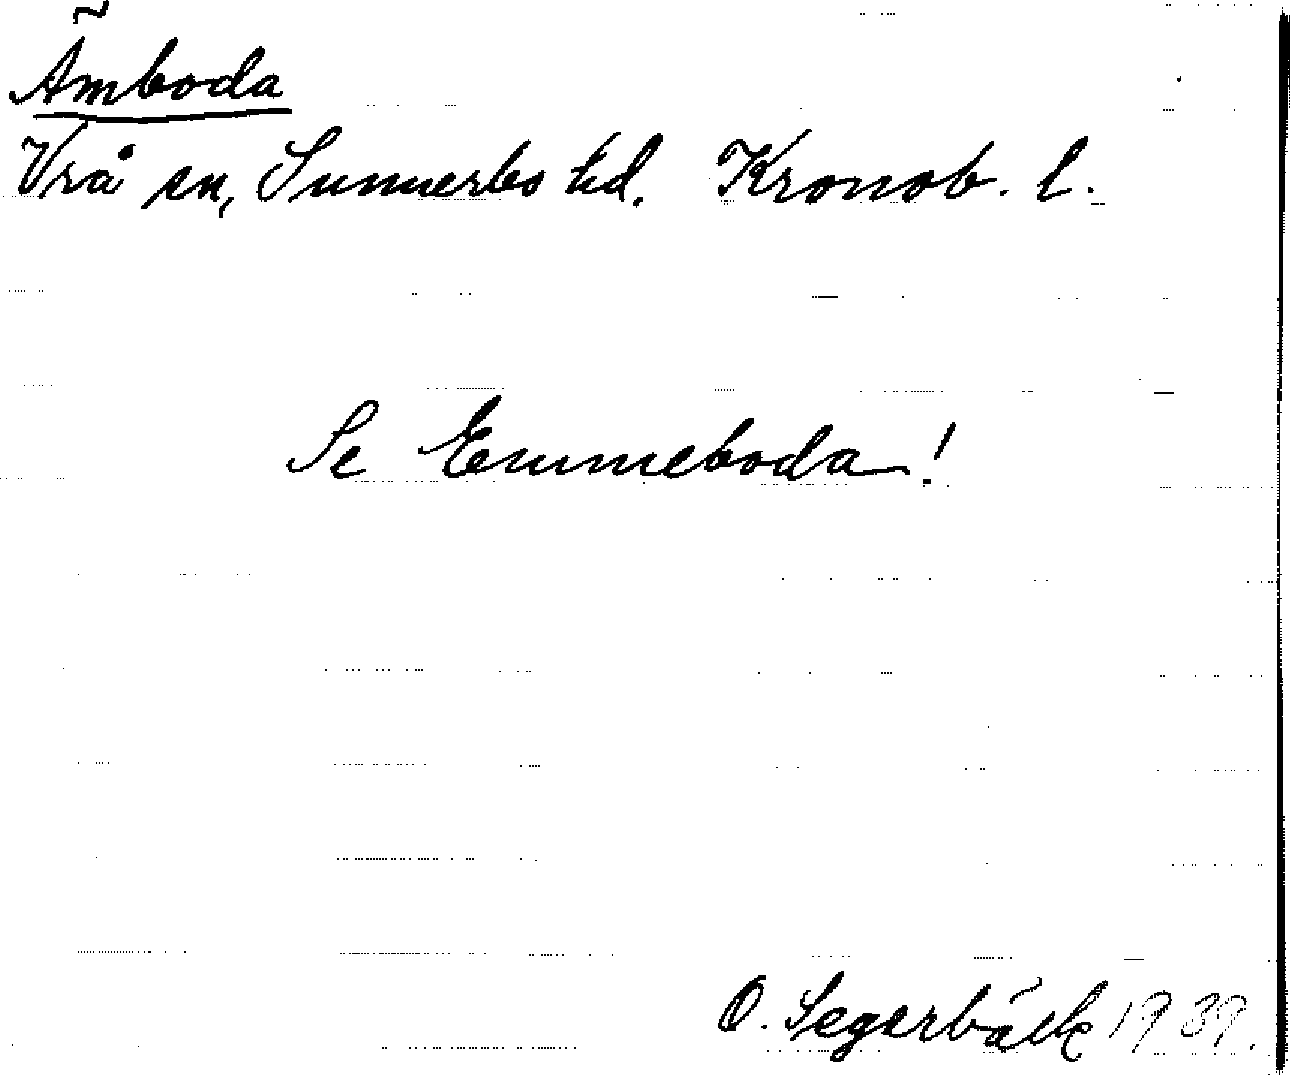 Ämboda
Vrå sn, Sunnerbo hd. Kronob. l.
Se Emmeboda!
O. Segerbäck 1939.